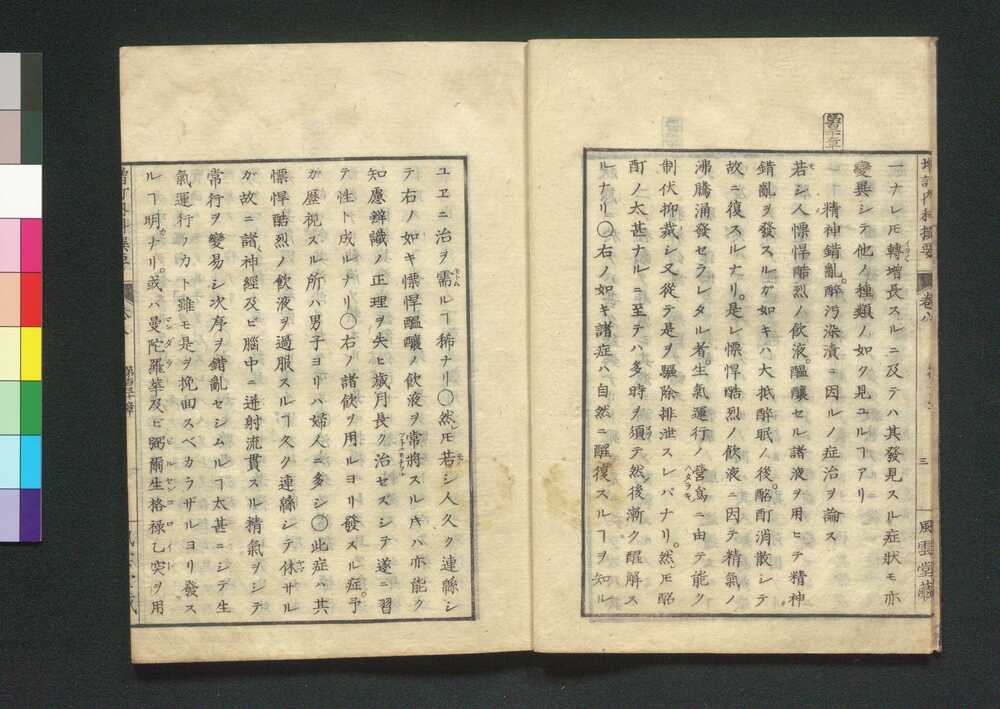 增訂內科撰要
卷八
三
風雲堂藏
一ナレㇳモ轉增長スルニ及テハ其發見スル症狀モ亦
變異シテ他ノ種類ノ如ク見ユルヿアリ
精神錯亂。醉汚染漬ニ因ルノ症治ヲ論ス
若シ人慓悍酷烈ノ飮液。醞釀セル諸液ヲ用ヒテ精神
錯亂ヲ發スルガ如キハ大抵醉眠ノ後。酩酊消散シテ
故ニ復スルナリ。是レ慓悍酷烈ノ飮液ニ因テ精氣ノ
沸騰涌發セラレタル者。生氣運行ノ營爲ニ由テ能ク
制伏抑裁シ又從テ是ヲ驅除排泄スレバナリ。然𪜈酩
酊ノ太甚ナルニ至テハ多時ヲ須テ然後漸ク醒解ス
ルナリ〇右ノ如キ諸症ハ自然ニ醒復スルヿヲ知ル
ユヱニ治ヲ需ルヿ稀ナリ〇然𪜈若シ人久ク連緜シ
テ右ノ如キ慓悍醞釀ノ飮液ヲ常將スルキハ亦能ク
知慮辨識ノ正理ヲ失ヒ歲月長ク治セズシテ遂ニ習
テ性ト成ルナリ〇右ノ諸飮ヲ用ルヨリ發スル症。予
ガ歷視スル所ハ男子ヨリハ婦人ニ多シ〇此症ハ其
慓悍酷烈ノ飮液ヲ過服スルヿ久ク連緜シテ休サル
ガ故ニ諸神經及ビ腦中ニ迸射流貫スル精氣ヲシテ
常行ヲ變易シ次序ヲ錯亂セシムルヿ太甚ニシテ生
氣運行ノカト雖モ是ヲ挽回スベカラザルヨリ發ス
ルヿ明ナリ。或ハ曼陀羅華及ビ弼爾生格祿乙突ヲ用